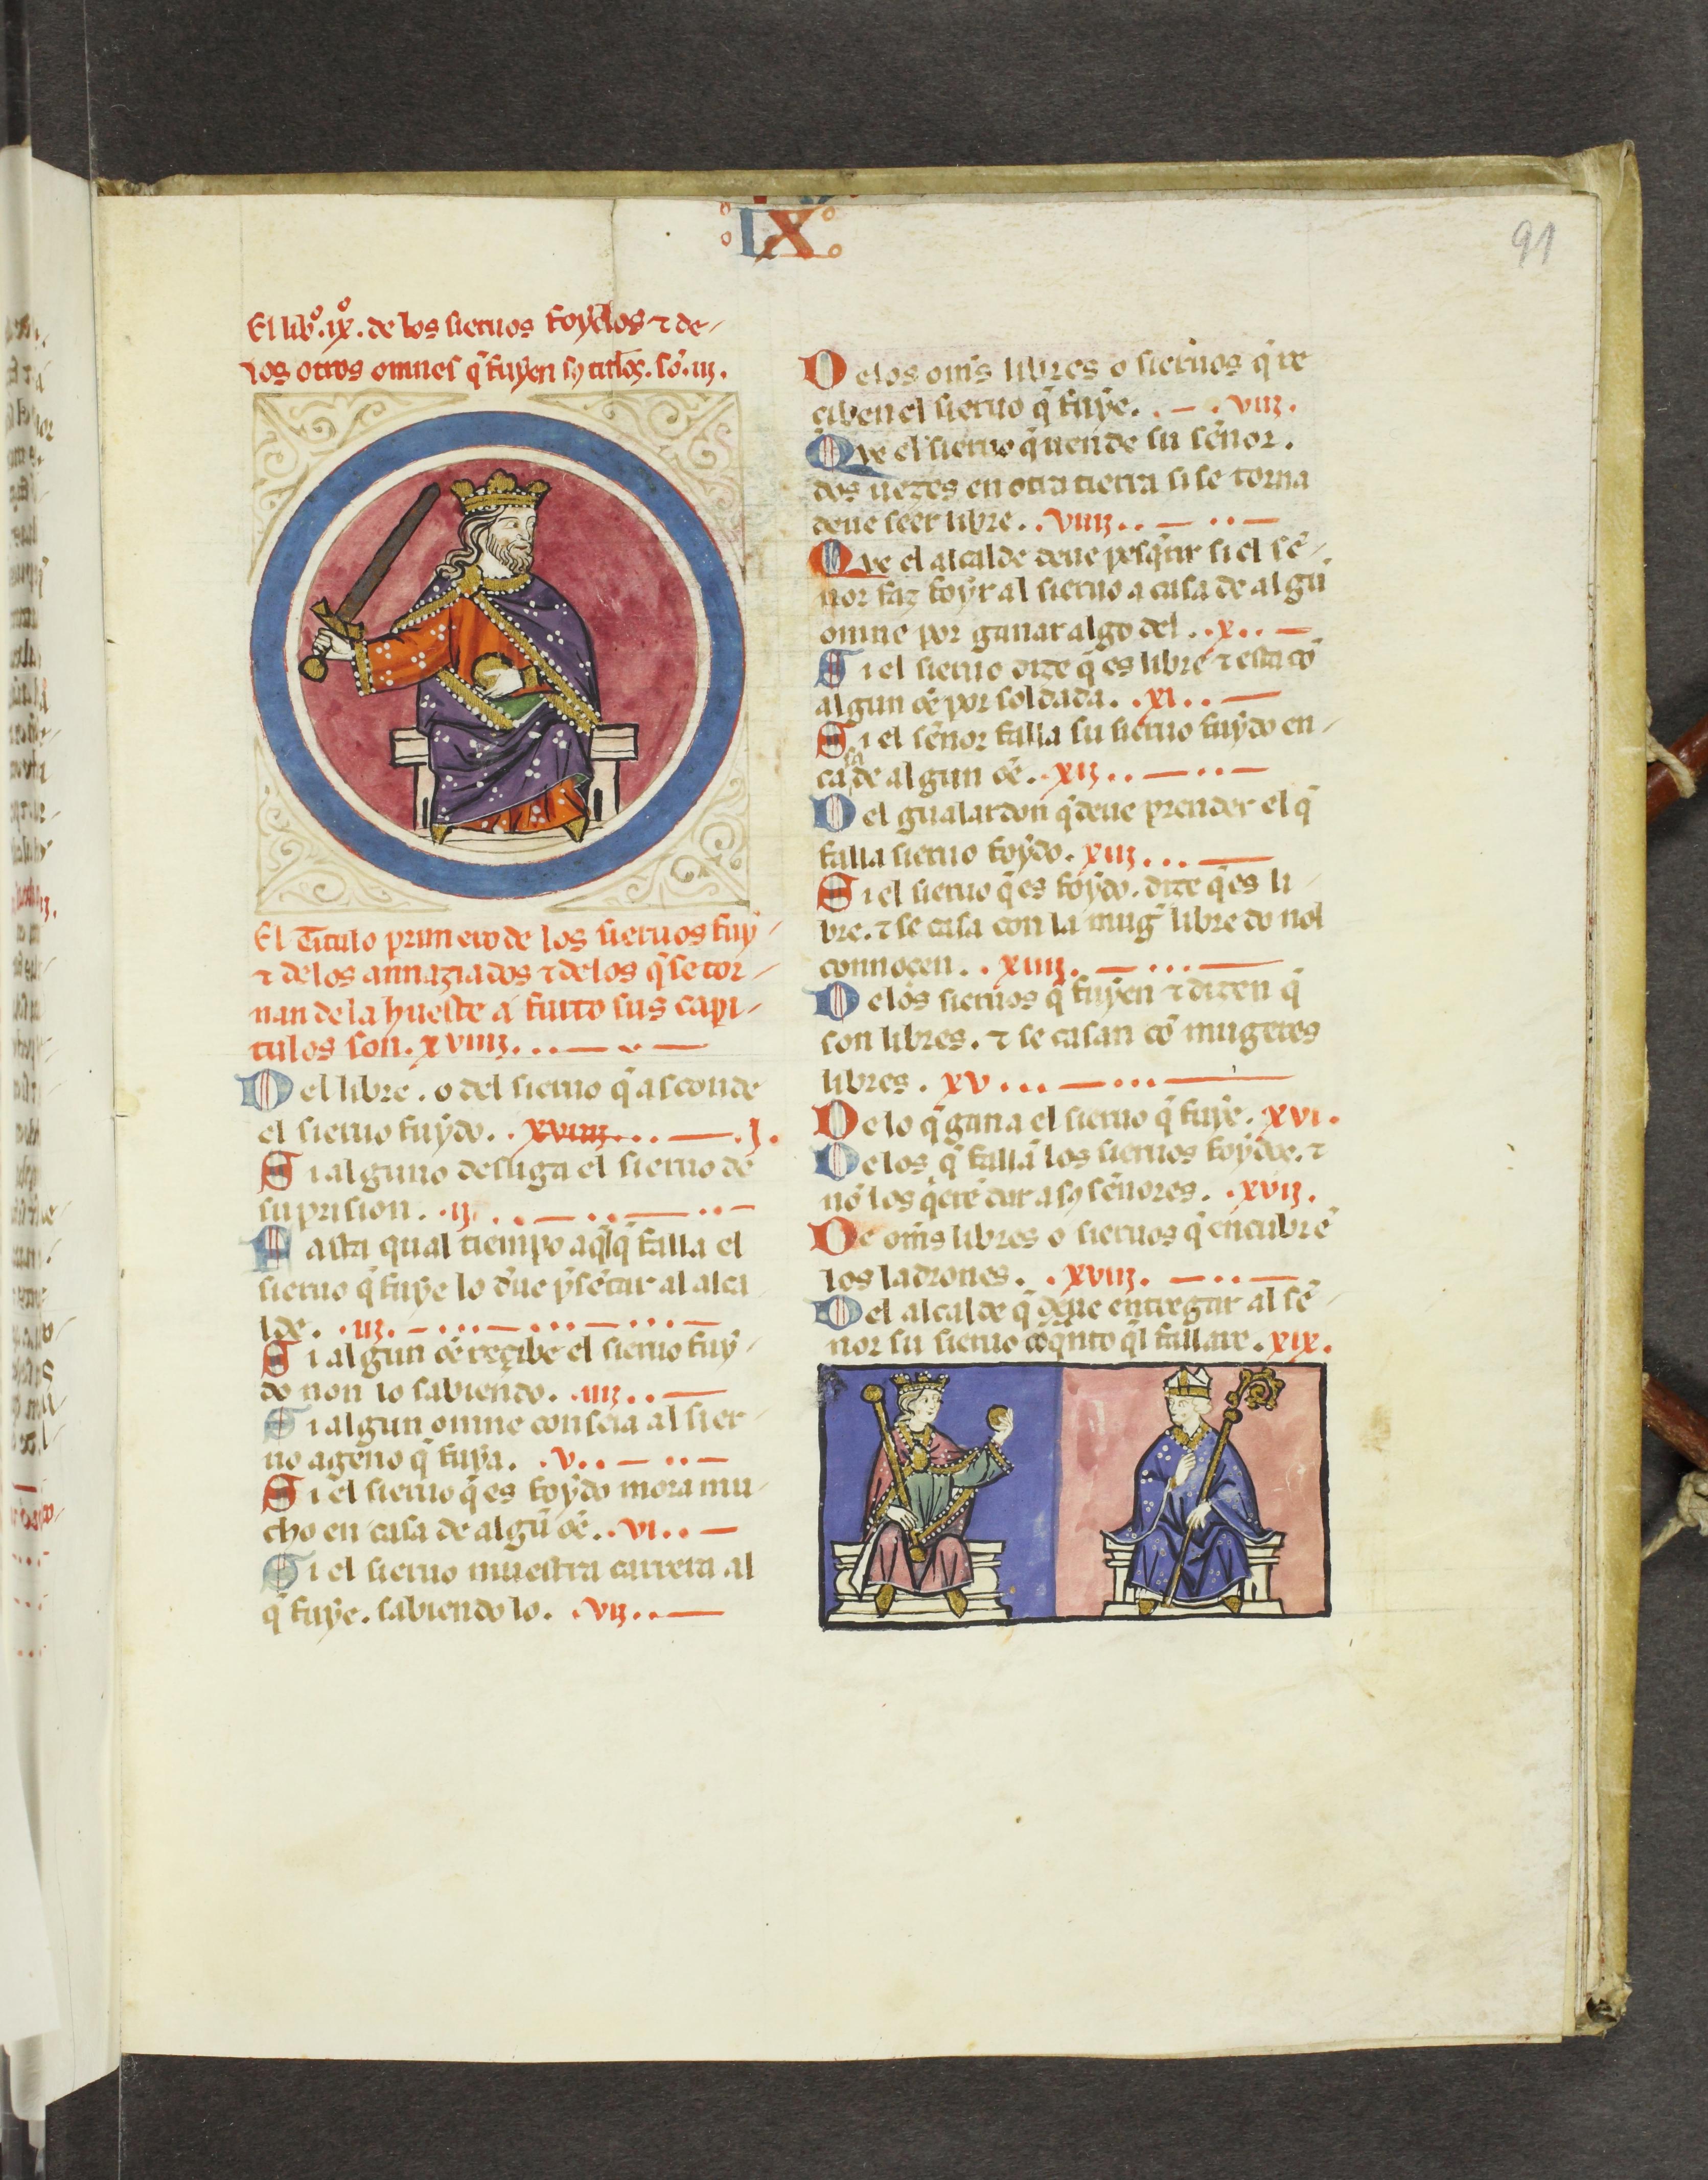 IX
91
El libº. ixº. de los sieruos foydos ⁊ de
los otros omnes q̃ fuyen sꝯ titłos. sõ. iij.
El Titulo primero de los sieruos fuyº
⁊ delos annaziados ⁊ delos q̃ se tor
nan de la hueste a furto sus capi
tulos son. xviiij...
Del libre. o del sieruo q̃ asconde
el sieruo fuydo. . xviiij... . j.
Si alguno desliga el sieruo de
su prision. .ij. ..
Fasta qual tiempo aq̃l q̃ falla el
sieruo q̃ fuye lo deue p̃sẽtar al alca
lde. .iij. ...
Si algun oẽ reçibe el sieruo fuy
do non lo sabiendo. .iiij. ..
Si algun omne conseia al sier
uo ageno q̃ fuya. .v. ..
Si el sieruo q̃ es foydo mora mu
cho en casa de algũ oẽ. .vi. ..
Si el sieruo muestra carrera al
q̃ fuye. sabiendo lo. .vij. ..
De los om̃s libres o sieruos q̃ re
çiben el sieruo q̃ fuye. . .viij.
Qve el sieruo q̃ uende su señor.
dos uezes en otra tierra si se torna
deue seer libre. .viiij. ..
Qve el alcalde deue pesq̃rir si el sẽ
nor faz foyr al sieruo a casa de algũ
omne por ganar algo del. .x. .
Si el sieruo dize q̃ es libre ⁊ esta cõ
algun oẽ por soldada. .xi. ..
Si el señor falla su sieruo fuydo en
casa de algun oẽ. .xij. ..
Del gualardon q̃ deue prender el q̃
falla sieruo foydo. xiij. ..
Si el sieruo q̃ es foydo. dize q̃ es li
bre. ⁊ se casa con la mug̃ libre do nol
connoçen. . xiiij. ...
De los sieruos q̃ fuyen ⁊ dizen q̃
son libres. ⁊ se casan cõ mugeres
libres. xv ...
De lo q̃ gana el sieruo q̃ fuye. xvi.
De los q̃ fallã los sieruos foydos. ⁊
nõ los q̃erẽ dar a sꝯ señores. .xvij.
De om̃s libres o sieruos q̃ encubrẽ
los ladrones. .xviij. ..
Del alcalde q̃ deue entregar al sẽ
nor su sieruo cõ q̃nto q̃l fallare. xix.